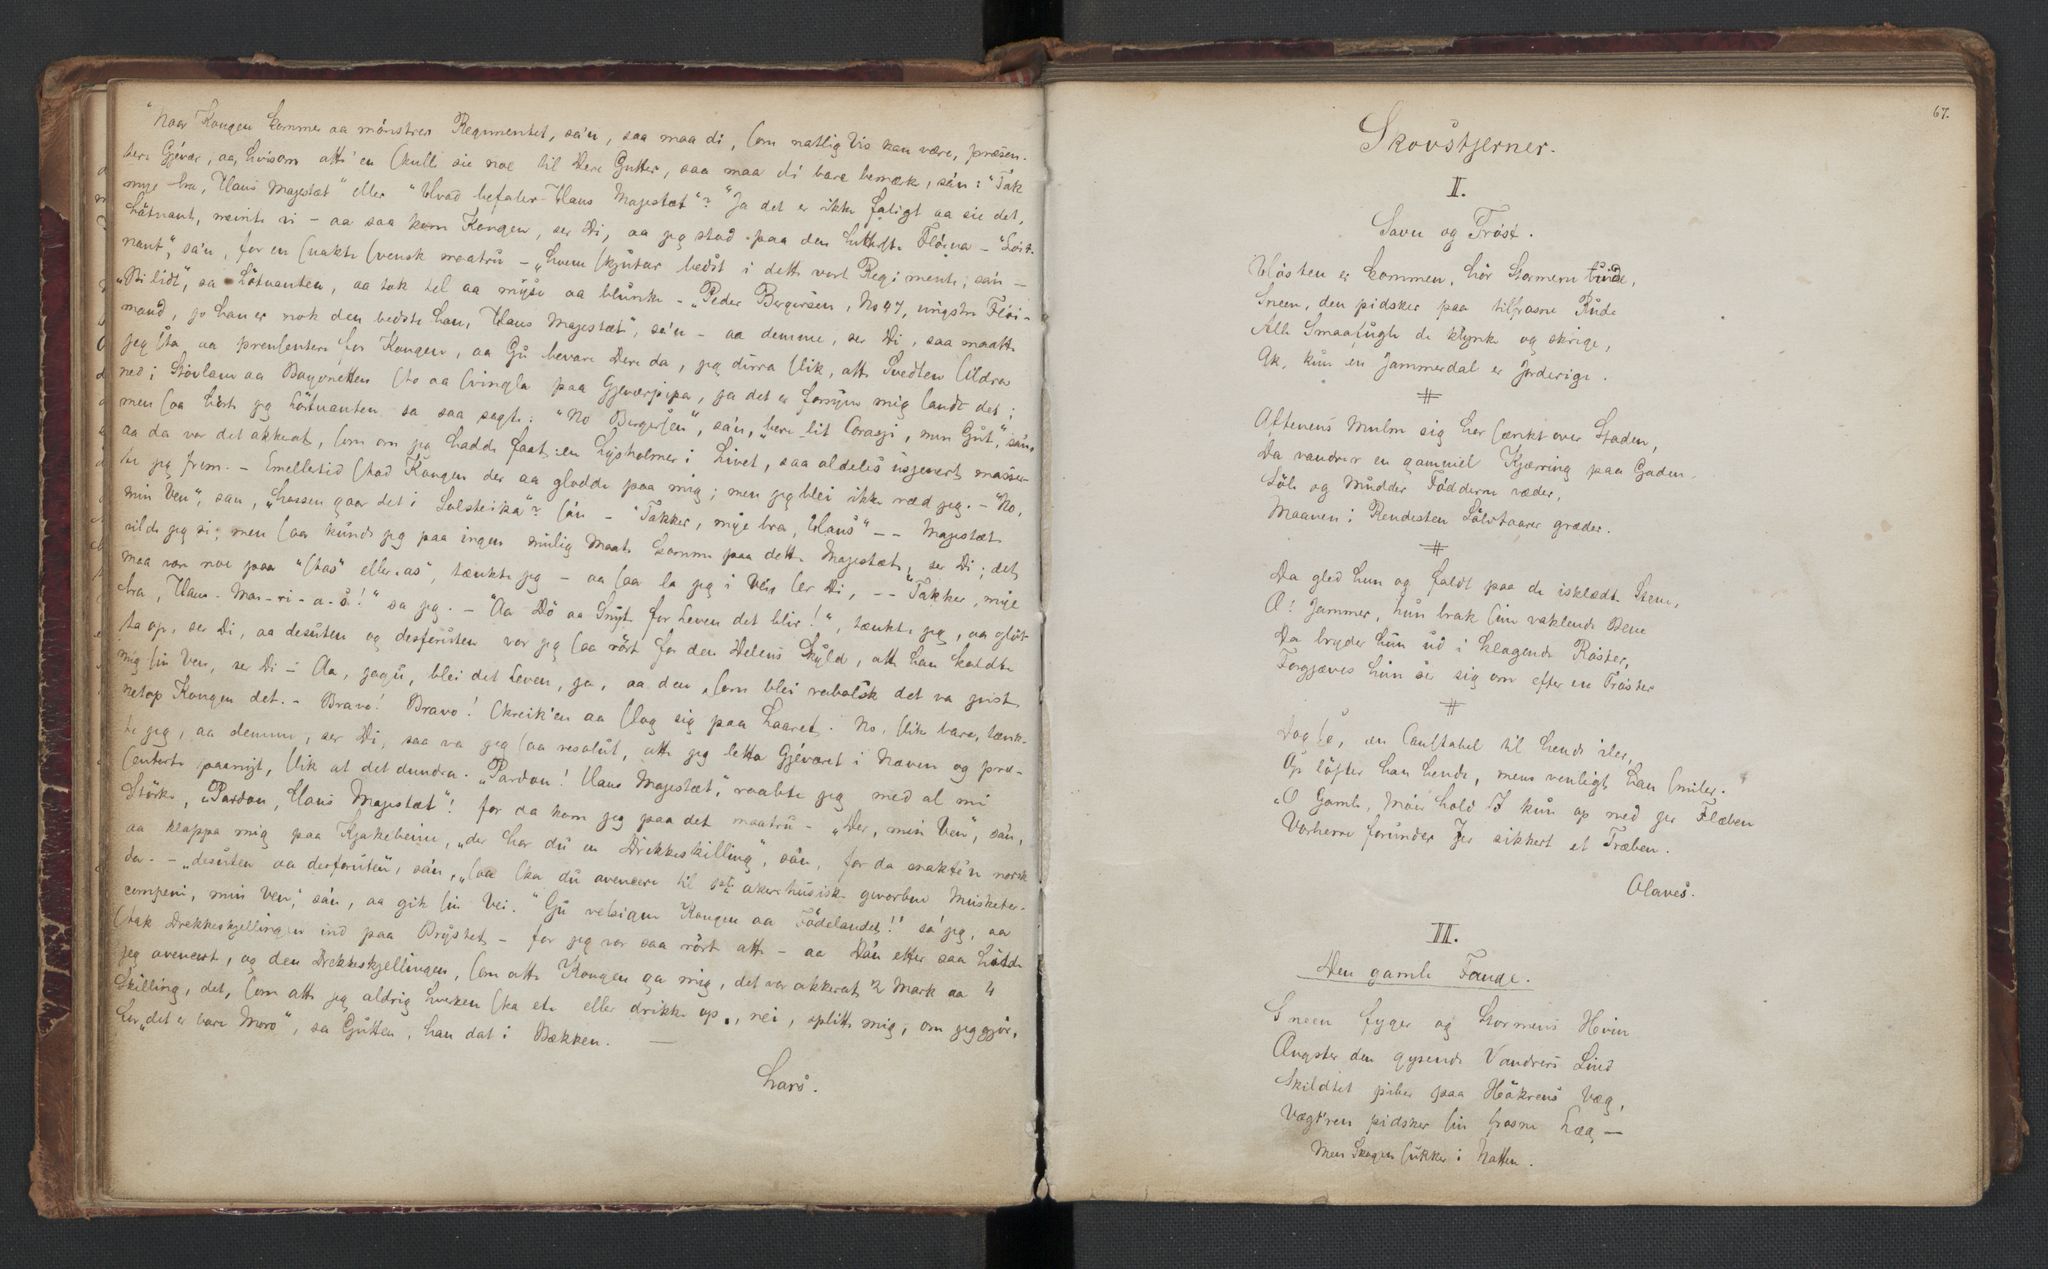 "Naar Kongen kommer aa mönstrer Regimentet, sa'n, saa maa di, som natlig Vis kan være, præsen-
tere Gjévær, aa, hvisom att' en skulle sie noe til Dere Gutter, saa maa di bare bemærke, sa'n: "Tak
mye bra, Hans Majestæt" eller "Hvad befaler Hans Majestæt"? "Ja det er ikke faligt aa sie det,
Lötnant, meinte vi – aa saa kom Kongen, ser Di, aa jeg stod paa den Flöiaa – "Löit-
nant", sa'n, for en snakte svensk maatru – "hvem skjutar bedst i dette vort Regimente, sa'n –
"Bi lidt", sa Lötnanten, aa tok til aa myse aa blunke – "Peder Bergersen, No 47, vingstre Flöi-
mand, jo han er nok den bedste han, Hans Majestæt", sa'n – aa demme, ser Di, saa maatte
jeg sta aa prensentere for Kongen, aa Gu bevare Dere da, jeg dirra slik, att Svedten sildra
ned i Stövlam aa Bayonetten sto aa svingla paa Gjeværpipa, ja det er forsyne mig sandt det;
men saa hörte jeg Lötnanten sa saa sagte: "No Bergersen", sa'n, "bere lit Corasji, min Gut", sa'n
aa da var det akkerat, som om jeg hadde faat en Lysholmer i Livet, saa aldeles usjenert masser-
te jeg frem. – Emelletid stod Kongen der aa glodde paa mig; men jeg blei ikke ræd jeg. – "No,
min Ven", san, "hossen gaar det i Solsteika"? sa'n – "Takker, mye bra, Hans" – – Majestæt
vilde jeg si; men saa kunde jeg paa ingen mulig Maate komme paa dette Majestæt, ser Di; det
maa vær noe paa "stas" eller "as", tænkte jeg – aa saa la jeg i Vei ser Di, – – "Takker, mye
bra, Hans Mas-ri-a-s!" sa jeg. – "Aa Dö aa Snyt for Leven det blir!", tænkte jeg, aa glöt-
ta op, ser Di, aa desuten og desforuten var jeg saa rört for den Delens Skyld, att han kaldte
mig sin Ven, ser Di – Aa, jagu, blei det Leven, ja, aa den, som blei rabalsk det va just
netop Kongen det. – Bravo! Bravo! skreik'en aa slog sig paa Laaret. No, slik bare, tænk-
te jeg, aa demme, ser Di, saa va jeg saa resolut, att jeg letta Gjéværet i Næven og præ-
senterte paanyt, slik at det dundra. "Pardon! Hans Majestæt", raabte jeg med al mi
Störke, "Pardon, Hans Majestæt"! for da kom jeg paa det maatru – "Der, min Ven", sa'n,
aa klappa mig paa Kjakebeine, "der har du en Drikkeskilling", sa'n, for da snakte'n norsk
da. – "desuten aa desforuten, sa'n, "saa ska du avencere til 1ste akershusiske gevorbne Musketer-
compeni, min Ven", sa'n, aa gik sin Vei. "Gu velsigne Kongen aa Födelandet!" sa jeg, aa
stak Drekkeskjellingen ind paa Brystet – for jeg var saa rört att – aa Da'n etter saa hadde
jeg avencert, og den Drekkeskjellingen, som atte Kongen ga mig, det var akkerat 2 Mark aa 4
Skilling, det, som att jeg aldrig hverken ska ete eller drikke op, nei, splitte mig, om jeg gjör,
for "det er bare Moro", sa Gutten, han dat i Bækken. –
Lars.
67.
Skovstjerner.
II.
Savn og Tröst.
Hösten er kommen, hör Stormen tude,
Sneen, den pidsker paa tilfrosne Rude
Alle Smaafugle de klynke og skrige,
Ak, kun en Jammerdal er Jorderige.
#
Aftenens Mulm sig har sænkt over Staden,
Da vandrer en gammel Kjærring paa Gaden.
Söle og Mudder Födderne væder,
Maanen i Rendesten Sölvtaarer græder.
#
Da gled hun og faldt paa de isklædte Stene,
O! Jammer, hun brak sine vaklende Bene
Da bryder hun ud i klagende Röster,
Forgjæves hun ser sig om efter en Tröster
#
Dog se, en Constabel til hende iler,
Op löfter han hende, mens venligt han smiler.
"O Gamle, Moer hold I kun op med jer Flæben
Vorherre forunder Jer sikkert et Træben.
Olaves.
III.
Den gamle Fange.
Sneen fyger og Stormens Hvin
Ængster den gysende Vandrers Sind
Skildtet piber paa Hökrens Væg,
Vægt'ren pidsker sin frosne Læg –
Men Skogen sukker i Natten.